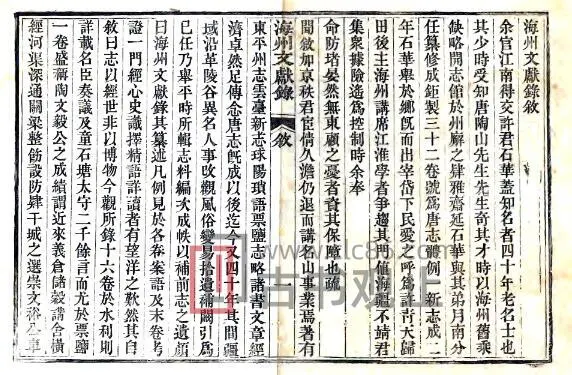 海州文獻錄敘
余官江南得交許君石華蓋知名者四十年老名士也
其少時受知唐陶山先生先生奇其才時以海州舊乘
缺略開志館於州廨之肆雅齋延石華與其弟月南分
任纂修成鉅製三十二卷號爲唐志刪例一新志成二
年石華舉於鄉旣而出宰岱下民愛之呼爲許靑天歸
田後主海州講席江淮學者爭趨其門値海疆不靖君
集衆據險遙爲控制時余奉
命防堵晏然無東顧之憂者資其保障也疏
聞敘加京秩君宦情久澹仍退而講名山事業焉著有
海州文獻錄
敘
一
東平州志雲臺新志球陽瑣語票鹽志略諸書文章經
濟卓然足傳念唐志旣成以後迄今又四十年其間疆
域沿革陵谷異名人事攺觀風俗變易拾遺補闕引爲
已任乃舉平時所輯志料編次成帙以補前志之遺顏
曰海州文獻錄其纂述凡例見於各卷案語及末卷考
證一門經心史識擇精語詳讀者有望洋之歎然其自
敘曰志以經世非以博物今觀所錄十六卷於水利則
詳載名臣奏議及童石塘太守二千餘言而尤於票鹽
一卷盛稱陶文毅公之成績謂近來義倉儲穀講舍橫
經河渠深通關梁整飭設防肆干城之選崇文裕公車